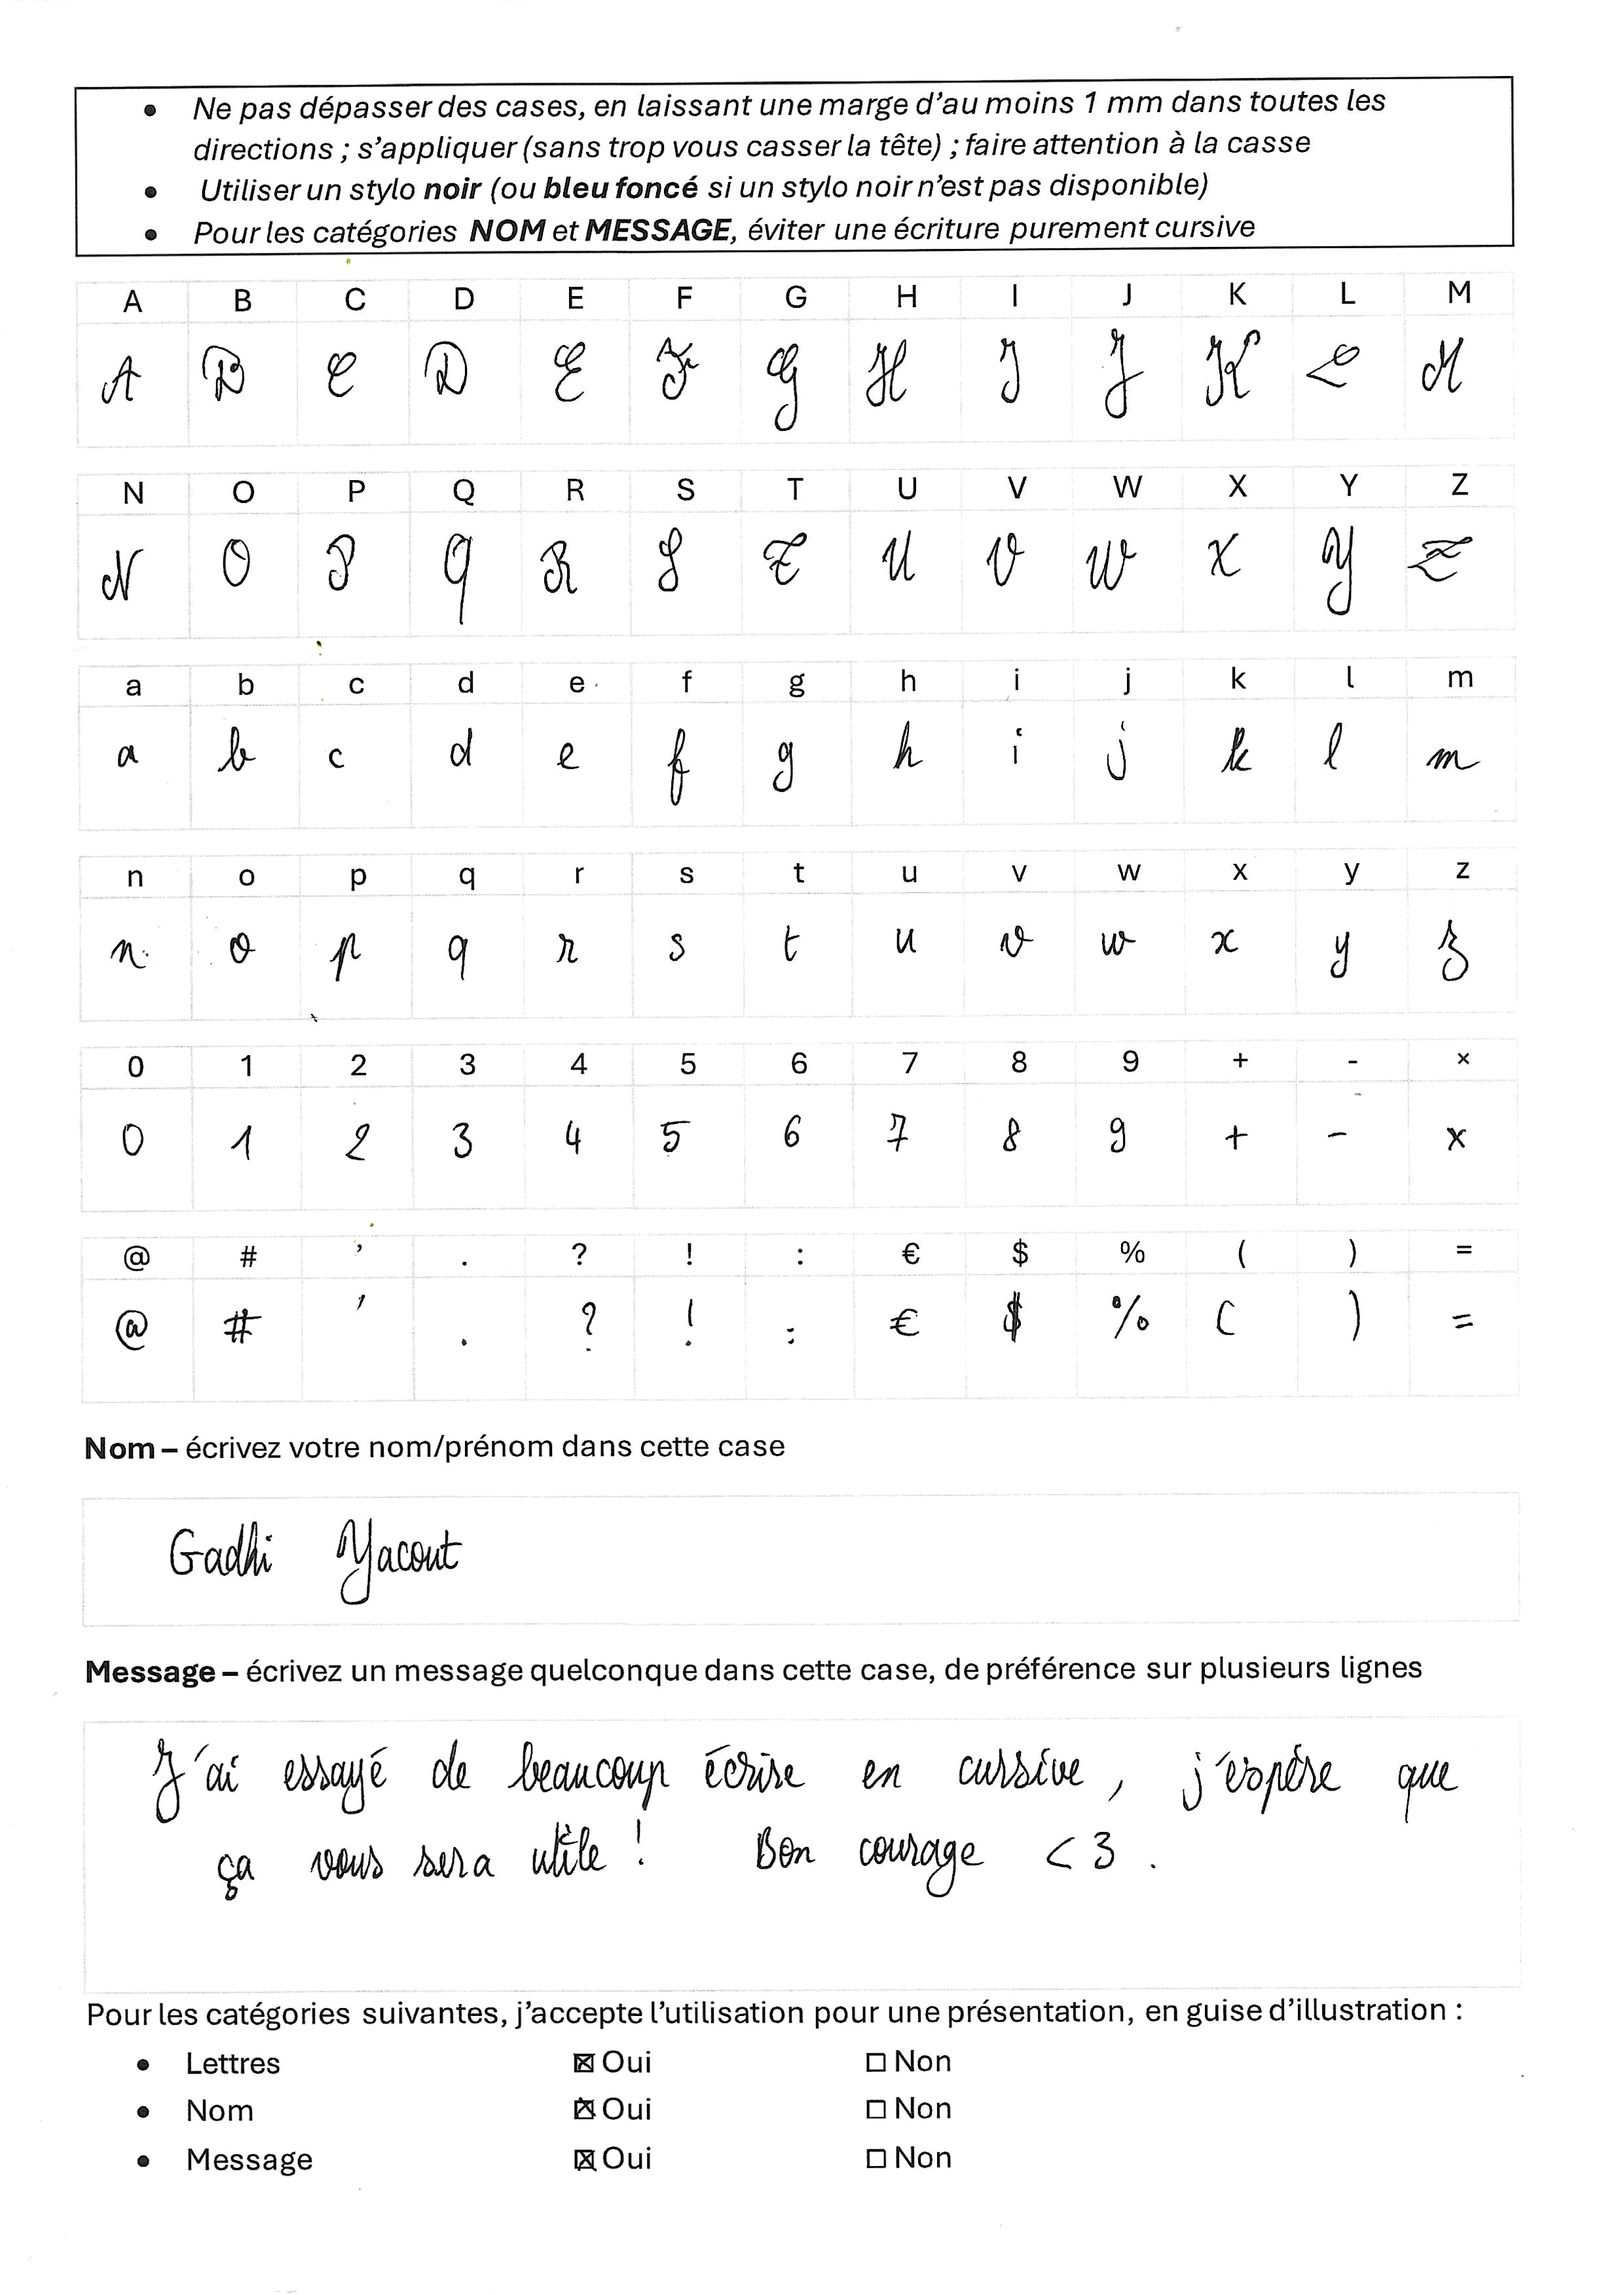 • Ne pas dépasser des cases, en laissant une marge d'au moins 1 mm dans toutes les
directions ; s'appliquer (sans trop vous casser la tête) ; faire attention à la casse
• Utiliser un stylo noir (ou bleu foncé si un stylo noir n'est pas disponible)
• Pour les catégories NOM et MESSAGE, éviter une écriture purement cursive
A B C D E F G H I J K L M
A B C D E F G H I J K L M
N O P Q R S T U V W X Y Z
N O P Q R S T U V W X Y Z
a b c d e f g h i j k l m
a b c d e f g h i j k l m
n o p q r s t u v w x y z
n o p q r s t u v w x y z
0 1 2 3 4 5 6 7 8 9 + - ×
0 1 2 3 4 5 6 7 8 9 + - ×
@ # ’ . ? ! : € $ % ( ) =
@ # ’ . ? ! : € $ % ( ) =
Nom – écrivez votre nom/prénom dans cette case
Gadhi Yacout
Message – écrivez un message quelconque dans cette case, de préférence sur plusieurs lignes
J'ai essayé de beaucoup écrire en cursive, j'espère que
ça vous sera utile ! Bon courage <3 .
Pour les catégories suivantes, j'accepte l'utilisation pour une présentation, en guise d'illustration :
• Lettres ☒ Oui ☐ Non
• Nom ☒ Oui ☐ Non
• Message ☒ Oui ☐ Non